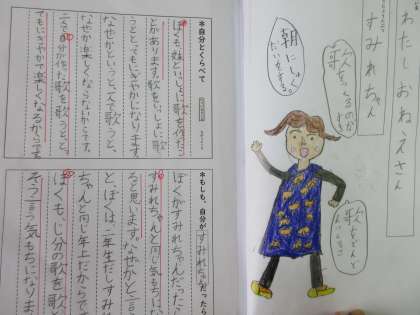 わたしおねえさん
すみれちゃん
歌をつくるのが
朝に
＊自分とくらべて
ぼくも、妹といっしょに歌を作ったこ
とがあります。歌をいっしょに歌
うととってもにぎやかになります。
なぜかというと、一人で歌うと、
なぜか楽しくならないからです。
二人で自分が作た歌を歌うと、と
てもにぎやかで楽しくなるからです
＊もしも、自分がすみれちゃんだったら
ぼくがすみれちゃんだったら
すみれちゃんと同じ気もちにな
ると思います。なぜかと言う
とぼくは二年生だしすみれ
ちゃんと同じ年上だからで
ぼくも、じ分の歌を歌
そう言う気もちになりま